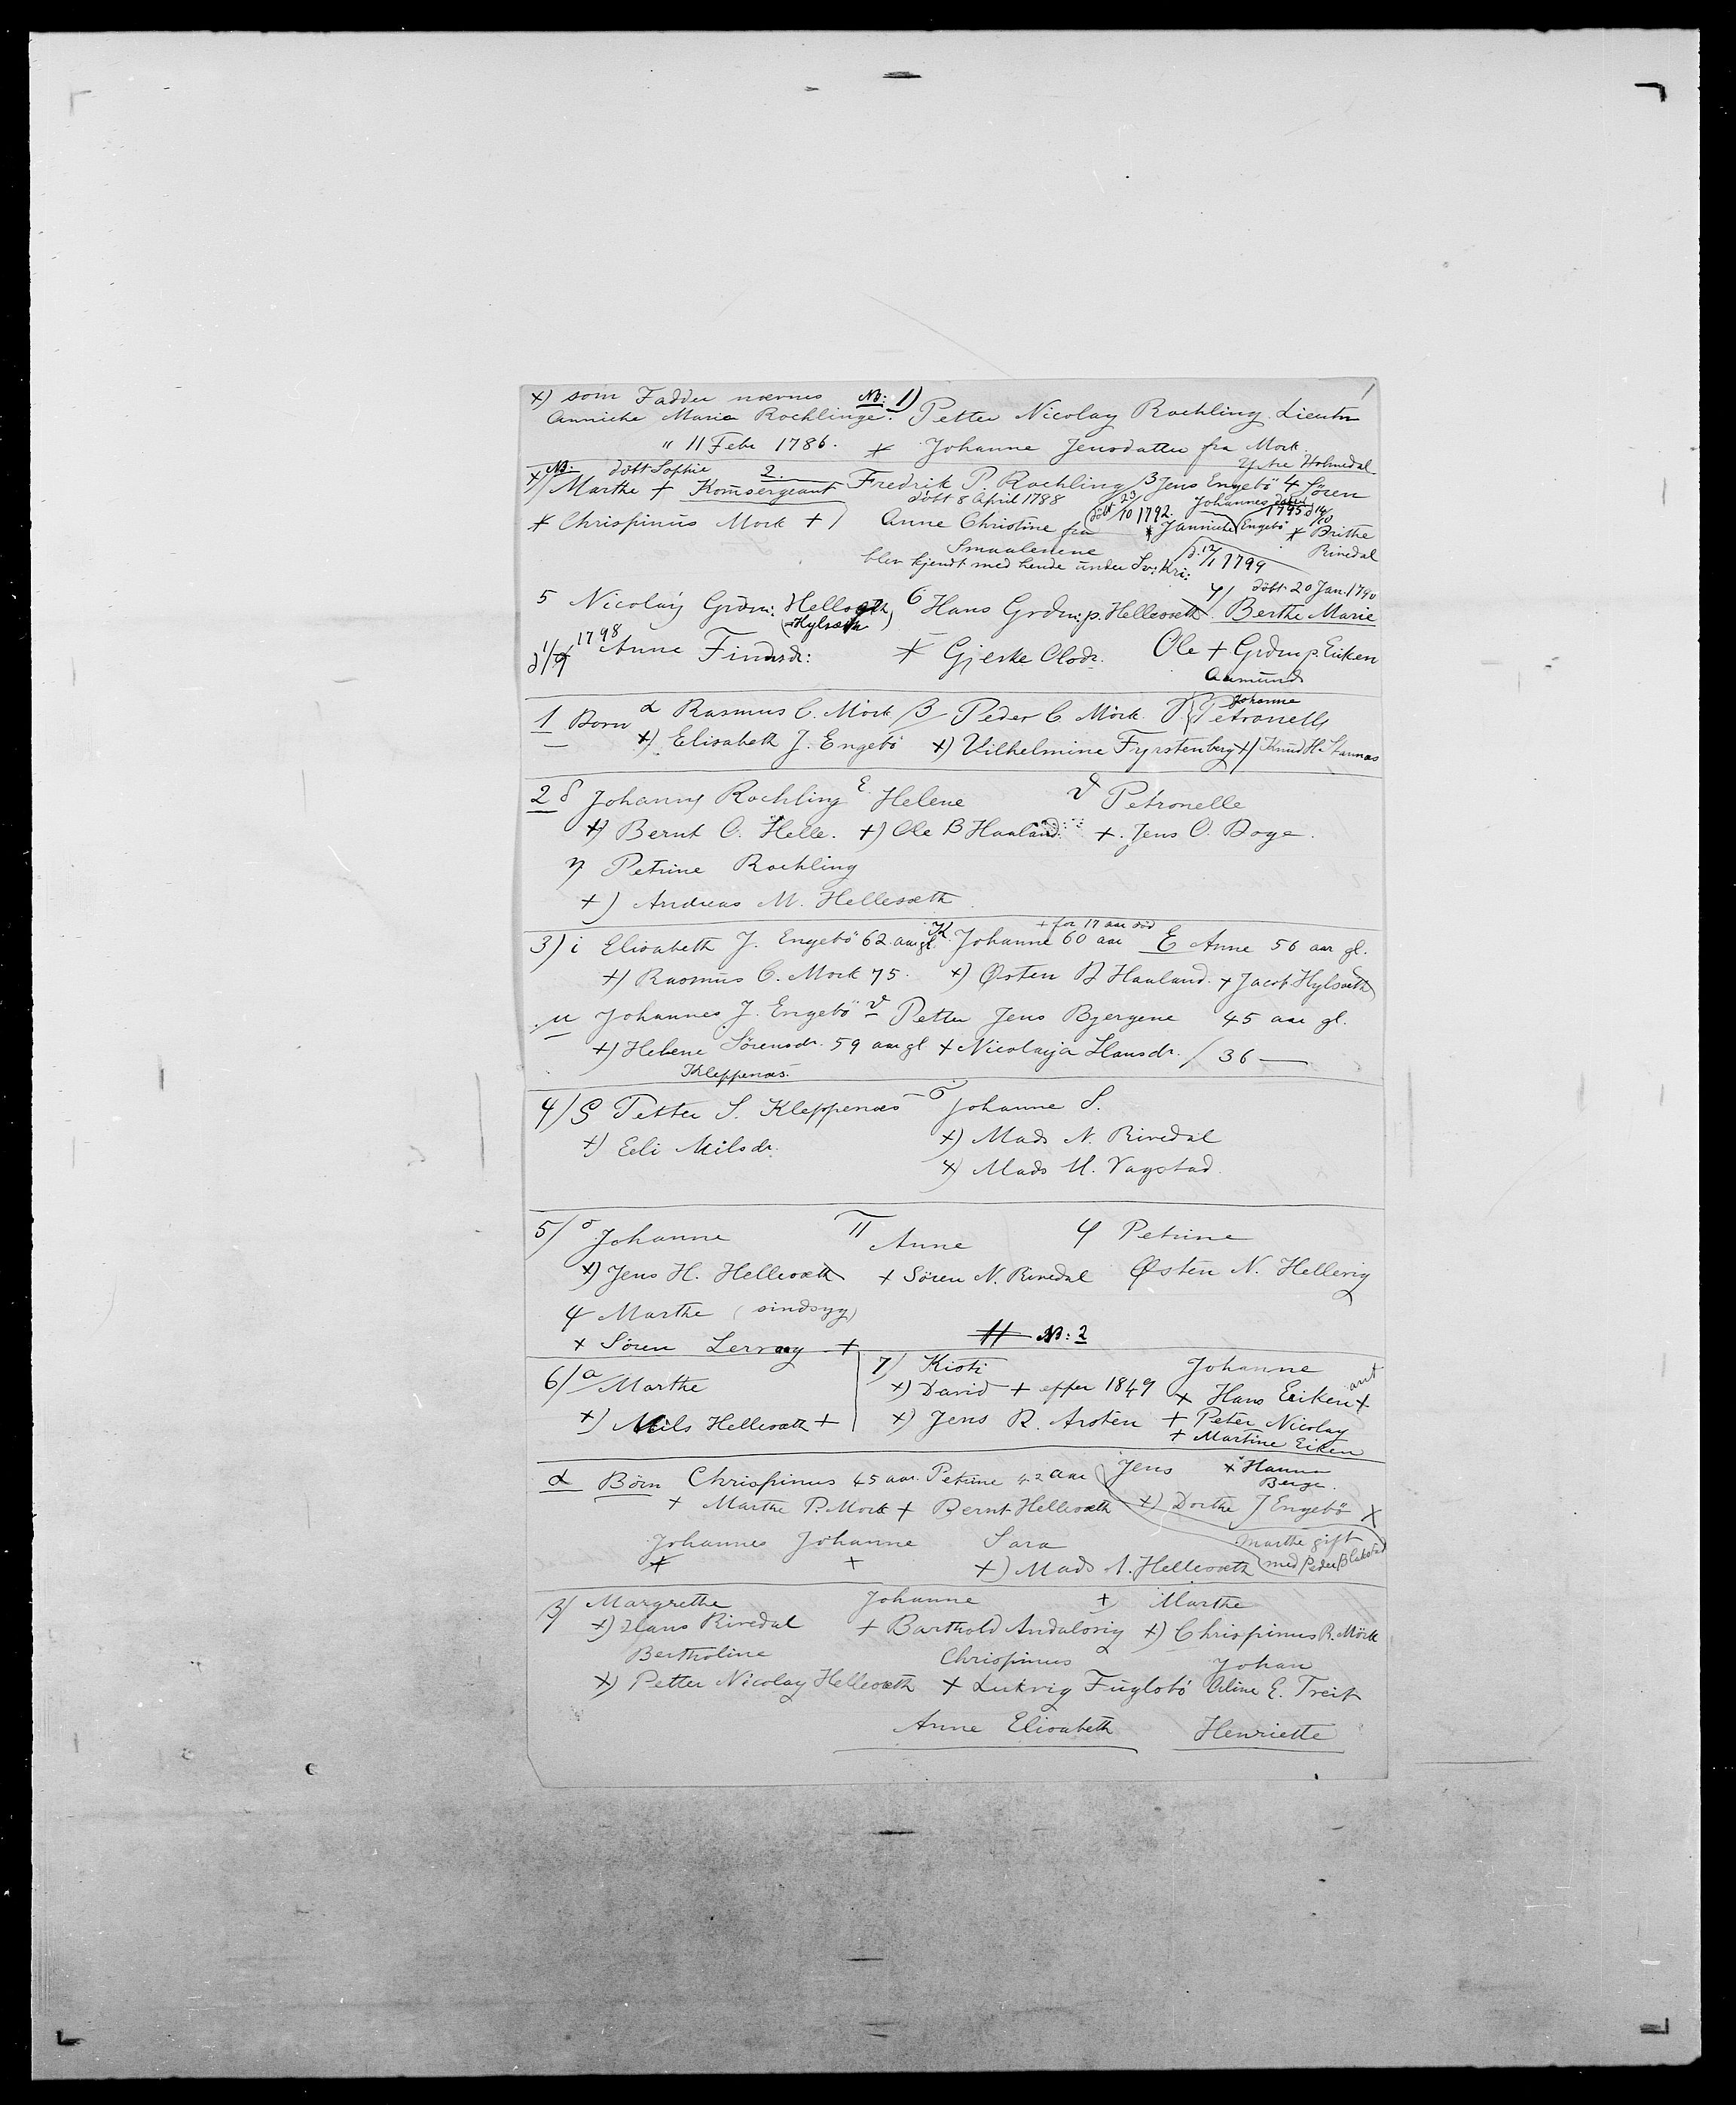 x) som Fadder nævnes NB: 1) 1
Annicke Maria Rochlinge. Petter Nicolay Rochling. Lieutn
" 11 Febr 1786. x Johanne Jensdatter fra Mork.
Ytre Holmedal
NB. döbt Sophie 2.
x/ Marthe + Komsergeant Fredrik P. Rochling /3 Jens Engebö 4 Sören
döbt 8 April 1788 döbt 23/10 1792. Johannes 1795
x Chrispinus Mork +) Anne Christine fra x Jannicke Engebö x Brithe
Smaalenene Rivedal
blev kjendt med hende under Sv: Kri: 1799
döbt 20 Jan. 1790
5 Nicolay Grdm: Hellesæth 6 Hans Grdm. p. Hellesæth 7/ Berthe Marie
(Hylsæth)
1798 Anne Findsdr: x Gjeske Olsdr. Ole + Grdm p. Eiken
Aamund
1 Born α Rasmus C. Mörk /3/ Peder C. Mörk Johanne
Petronelle
x) Elisabeth J. Engebö x) Vilhelmine Fyrstenberg x/ Knud H. Stannæs
2 δ Johannes Rochling ε Helene ϑ Petronelle
x) Bernt O. Helle. +) Ole B Haaland +. Jens O. Doge.
η Petrine Rochling
+) Andreas M. Hellesæth
+ for 17 aar död
3) i Elisabeth J. Engebö 62 aar gl. Johanne 60 aar E Anne 56 aar gl.
+) Rasmus C. Mork 75. x) Østen B Haaland. + Jacob Hylsæth
μ Johannes J. Engebö ν Petter Jens Bjergene 45 aar gl.
x) Helene Sörensdr. 59 aar gl + Nicolaija Hansdr. / 36 —
Kleppenæs.
4/ S Petter S. Kleppenæs – σ Johanne S.
+) Eeli Nilsdr. x) Mads N. Rivedal
x) Mads M. Vagstad.
5/ σ Johanne π Anne φ Petrine
x) Jens H. Hellesæth + Sören N. Rivedal Østen N. Hellevig
φ Marthe (sindsyg)
x Sören Lervaag + NB: 2
6/ a Marthe 7/ Kisti Johanne
x) David + efter 1849 x Hans Eiken +
x) Nils Hellesæth + x) Jens R. Arsten + Peter Nicolay
+ Martine Eiken
α Börn Chrispinus 45 aar. Petrine 42 aar Jens x Hanna
Berge.
+ Marthe P. Mork + Bernt Hellesæth x) Dorthe J Engebö x
Johannes Johanne Sara Marthe gift
x + x) Mads A. Hellesæth med Peder Blakstad
β/ Margrethe Johanne + Marthe
x) Hans Rivedal + Barthold Andalsvig x) Chrispinus R. Mörk
Bertholine Chrispinus Johan
x) Petter Nicolay Hellesæth + Lukvig Fuglobö Oline E. Treit
Anne Elisabeth Henriette